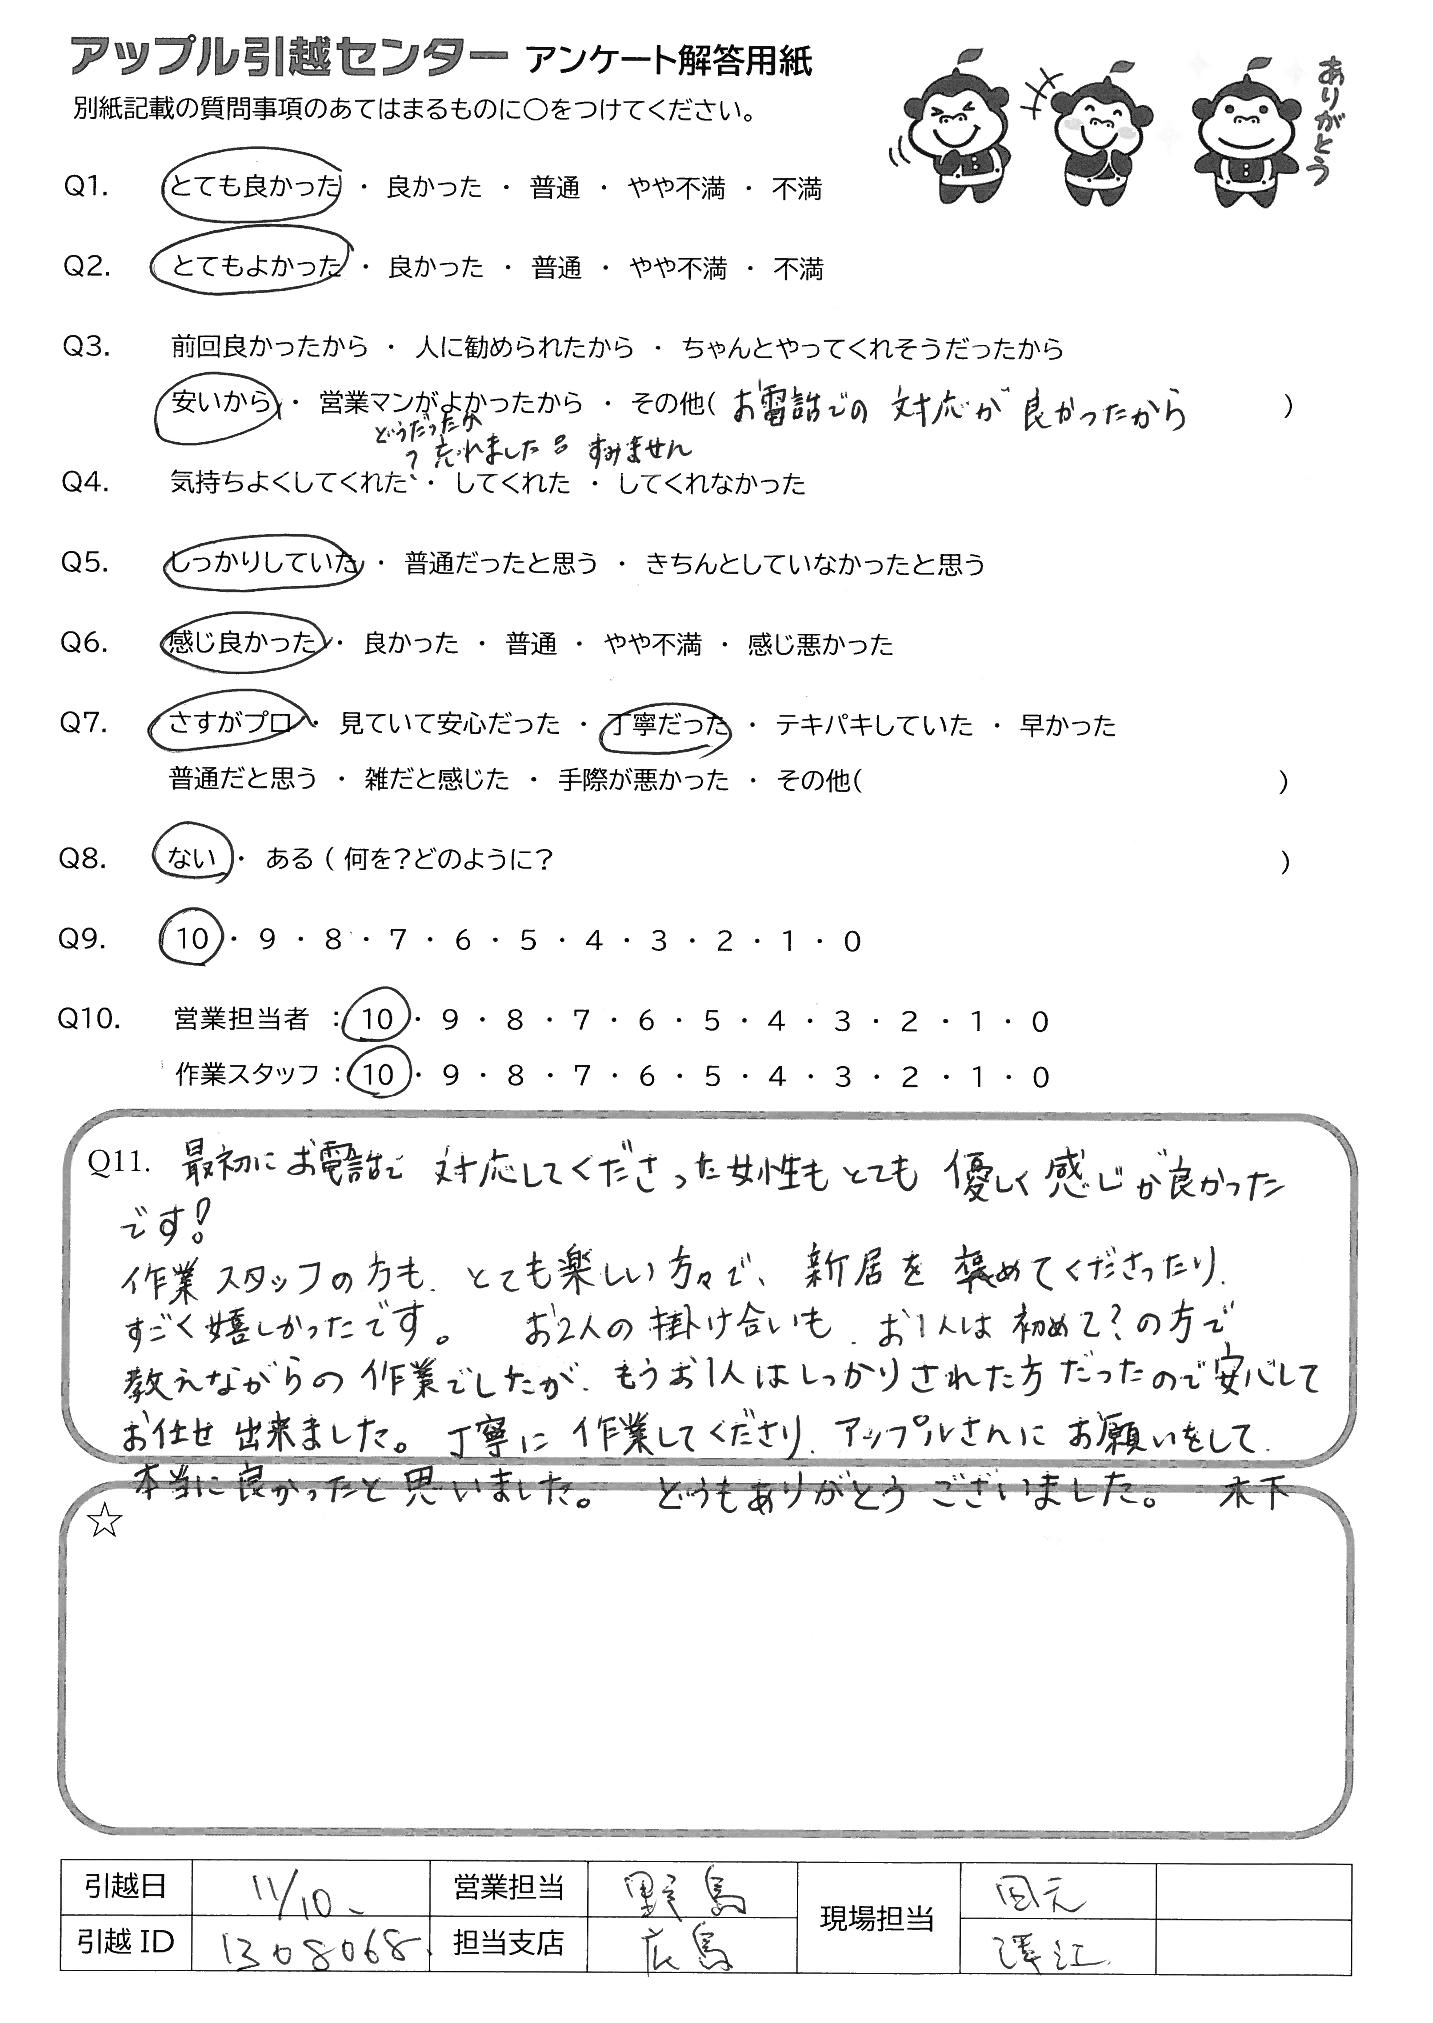 アップル引越センター アンケート解答用紙
別紙記載の質問事項のあてはまるものに○をつけてください。
ありがとう
Q1. とても良かった ・ 良かった ・ 普通 ・ やや不満 ・ 不満
Q2. とてもよかった ・ 良かった ・ 普通 ・ やや不満 ・ 不満
Q3. 前回良かったから ・ 人に勧められたから ・ ちゃんとやってくれそうだったから
安いから ・ 営業マンがよかったから ・ その他( お電話での 対応が 良かったから )
どうだったか
? 忘れました すみません
Q4. 気持ちよくしてくれた ・ してくれた ・ してくれなかった
Q5. しっかりしていた ・ 普通だったと思う ・ きちんとしていなかったと思う
Q6. 感じ良かった ・ 良かった ・ 普通 ・ やや不満 ・ 感じ悪かった
Q7. さすがプロ ・ 見ていて安心だった ・ 丁寧だった ・ テキパキしていた ・ 早かった
普通だと思う ・ 雑だと感じた ・ 手際が悪かった ・ その他( )
Q8. ない ・ ある ( 何を?どのように? )
Q9. 10 ・ 9 ・ 8 ・ 7 ・ 6 ・ 5 ・ 4 ・ 3 ・ 2 ・ 1 ・ 0
Q10. 営業担当者 : 10 ・ 9 ・ 8 ・ 7 ・ 6 ・ 5 ・ 4 ・ 3 ・ 2 ・ 1 ・ 0
作業スタッフ : 10 ・ 9 ・ 8 ・ 7 ・ 6 ・ 5 ・ 4 ・ 3 ・ 2 ・ 1 ・ 0
Q11. 最初に お電話で 対応してくださった女性も とても 優しく 感じが良かった
です!
作業スタッフの方も、とても楽しい方々で、新居を 褒めてくださったり、
すごく嬉しかったです。 お2人の 掛け合いも、お1人は 初めて?の方で
教えながらの 作業でしたが、もうお1人はしっかりされた方だったので安心して
お任せ 出来ました。丁寧に 作業してくださり、アップルさんに お願いをして、
本当に良かったと 思いました。 どうもありがとう ございました。 木下
☆
引越日 11/10 営業担当 野島 現場担当 国元
引越ID 1308068 担当支店 広島 澤江